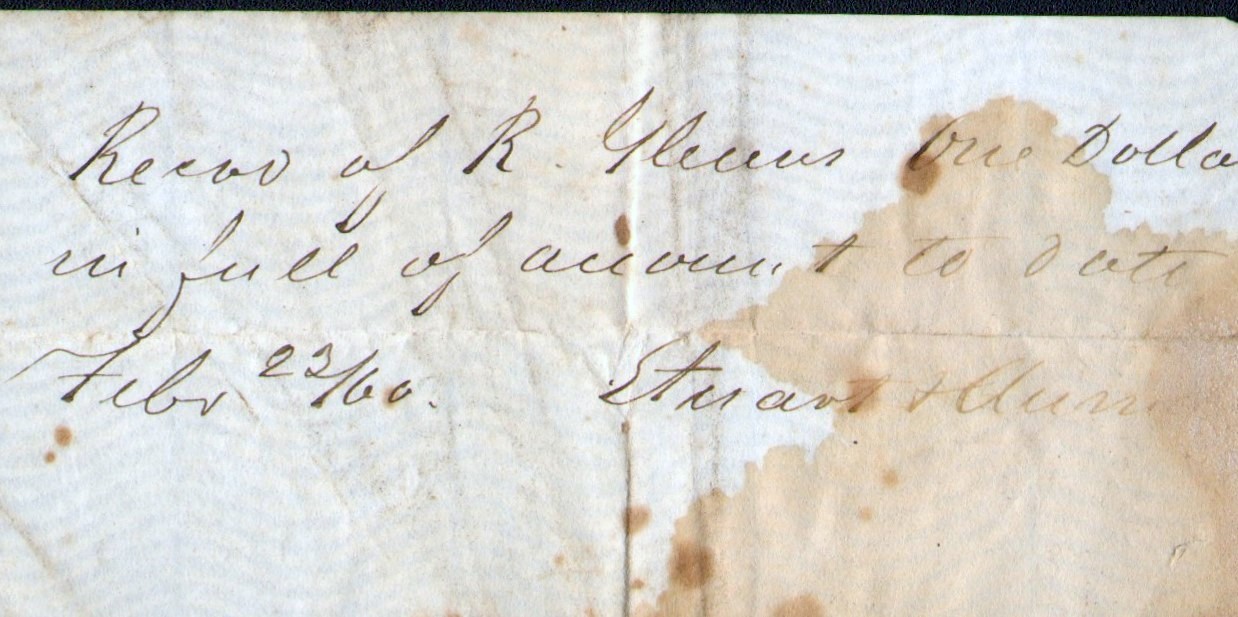 Recvd of R. Glenns One Dolla
in full of account to date
Febr 23/60. Stuart &